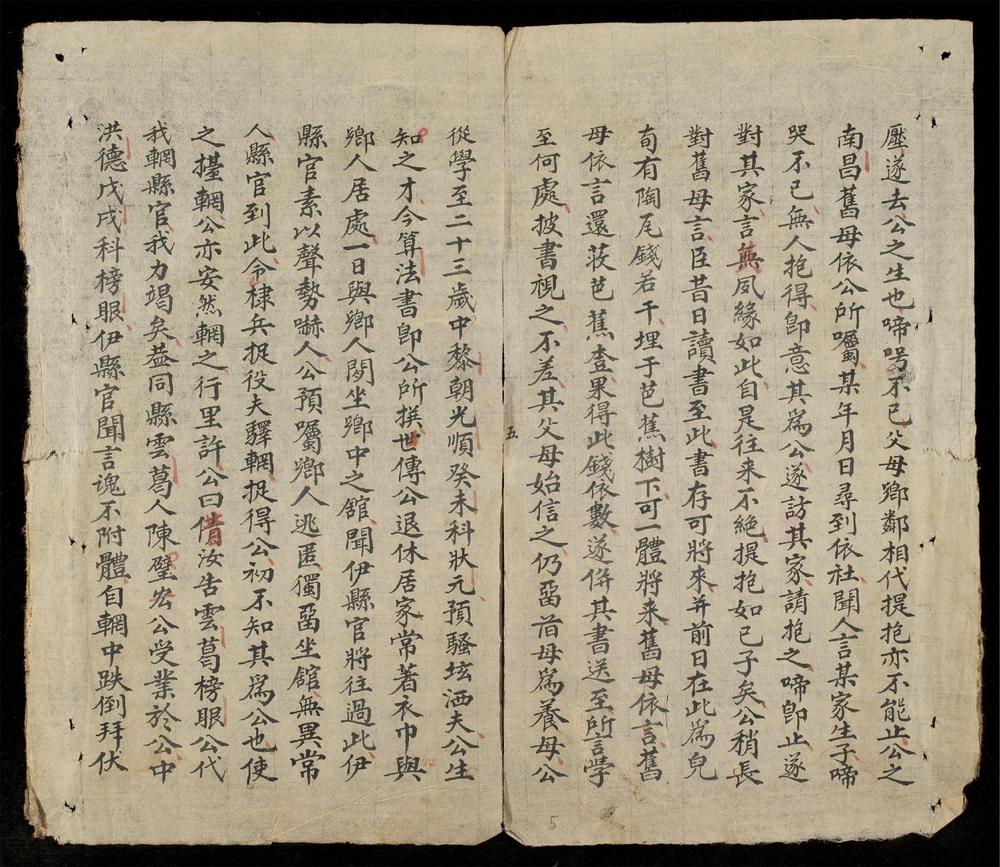 壓遂去公之生也啼号不已父母鄉鄰相代提抱亦不能止公之
南昌舊母依公所囑某年月日尋到依社聞人言某家生子啼
哭不已無人抱得卽意其爲公遂訪其家請抱之啼卽止遂
對其家言無夙緣如此自是往來不絶提抱如已子矣公稍長
對舊母言臣昔日讀書至此書存可將來并前日在此爲兒
旬有陶瓦錢若干埋于芭蕉樹下可一體將來舊母依言舊
母依言還荍芭蕉查果得此錢依數遂倂其書送至所言學
至何處披書視之不差其父母始信之仍畱首母爲養母公
五
從學至二十三歲中黎朝光順癸未科狀元預騷垓洒夫公生
知之才今算法書卽公所撰世傳公退休居家常著衣巾與
鄉人居處一日與鄉人閒坐鄉中之舘聞伊縣官將往過此伊
縣官素以聲勢嚇人公預囑鄉人逃匿獨畱坐舘無異常
人縣官到此令棣兵捉役夫驛輞捉得公初不知其爲公也使
之擡輞公亦安然輞之行里許公曰借汝告雲葛榜眼公代
我輞縣官我力竭矣葢同縣雲葛人陳璧宏公受業於公中
洪德戊戌科榜眼伊縣官聞言魂不附體自輞中跌倒拜伏
5